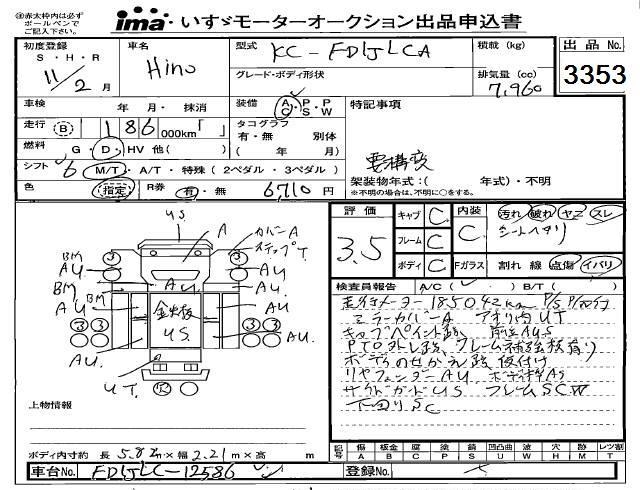 ※赤太枠内は必ず
ボールペンで
ご記入下さい。
ima・いすゞモーターオークション出品申込書
初度登録
S・H・R
11/2月
車名
Hino
型式
KC-FD1JLCA
グレード・ボディ形状
積載 (kg)
排気量 (cc)
7,960
出品 No.
3353
車検 年 月・抹消
走行 (B) 186 000km「 」
燃料 G・D・HV 他( )
シフト 6 M/T・A/T・特殊 (2ペダル・3ペダル)
色 (指定) R券 有・無 6,710 円
装備 A・P・P
C S W
タコグラフ
有・無 別体
( 年 月)
特記事項
要構変
架装物年式:( 年式)・不明
※不明の場合は、不明に〇をする。
US
カバー A
ステップ T
BM
AU
A
AU.
BM
AU
BM
AU
US.
AU.
AU.
UT
上物情報
ボディ内寸約 長 5.82m×幅 2.21m×高 m
評価
3.5
キャブ C
フレーム C
ボディ C
内装
C
Fガラス
汚れ 破れ ヤニ スレ
シートヘタリ
割れ 線 点傷 イバリ
検査員報告 A/C( ) B/T( )
走行メーター185042km P/S P/W付
ミラーカバーA アオリ内UT
キャブペイント跡
PTO外し跡、フレーム補強板有り
ボデーのせかえ跡
リヤフェンダーAU
サイドガードUS フレームSCW
下回りSC
記号 傷 板金 腐 歪 塗 錆 凹凸曲 波 穴 跡 レツ割
A B C P S U W H M T
車台No. FD1JLC-12586
登録No.